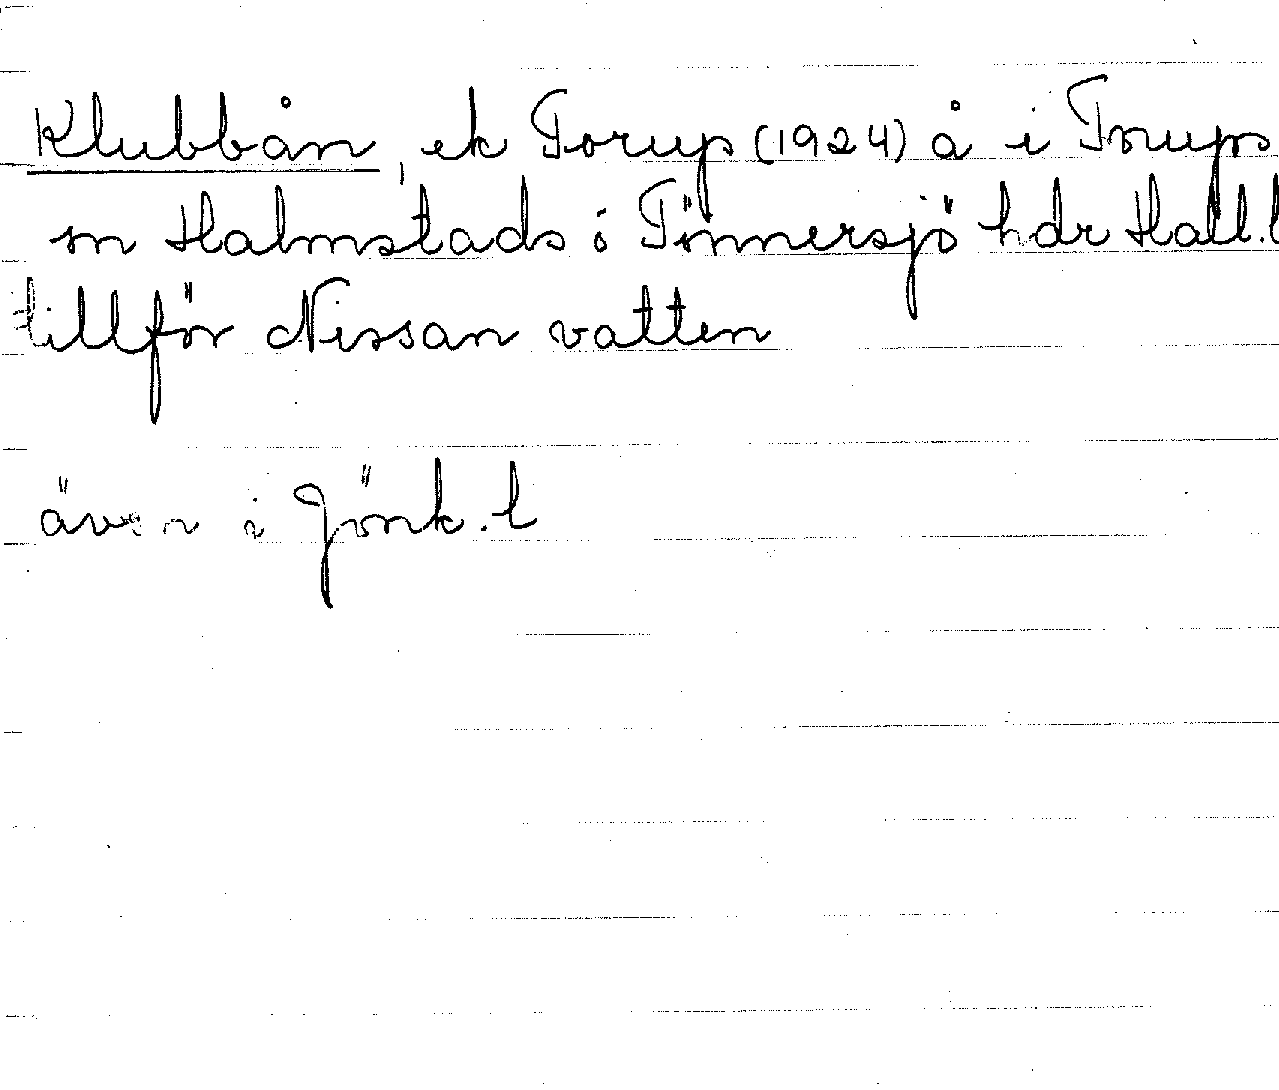 Klubbån, ek Torup (1924) å i Torups
sn Halmstads ö Tönnersjö hdr Hall.l
tillför Nissan vatten
även i Jönk.l